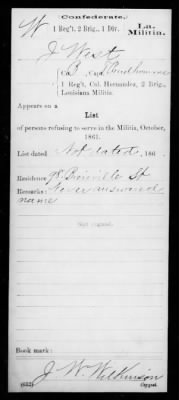 Confederate.
W 1 Reg't, 2 Brig., 1 Div. La. Militia.
J West
Co. B, Capt. Prudhomme
1 Reg't, Col. Hernandez, 2 Brig., Louisiana Militia.
Appears on a
List
of persons refusing to serve in the Militia, October,
1861.
List dated Not dated, 186 .
Residence 98 Bienville St
Remarks: Never answered
name
Not signed.
Book mark:
J. W. Wilkinson
(652) Copyist.